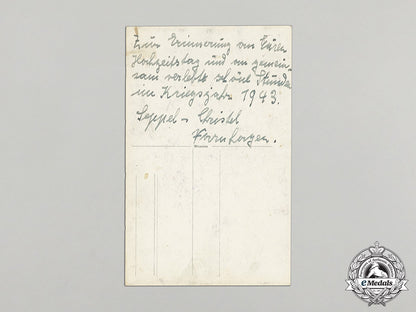 Zur Erinnerung an Euren
Hochzeitstag und an gemein-
sam verlebte schöne Stunden
im Kriegsjahr 1943.
Seppel - Christel
eMedals